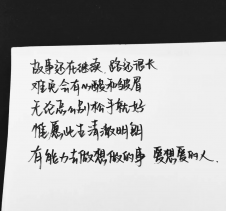 故事还在继续 路还很长
难免会有心酸和皱眉
无论怎么别松手就好
惟愿此生清澈明朗
有能力去做想做的事 爱想爱的人.